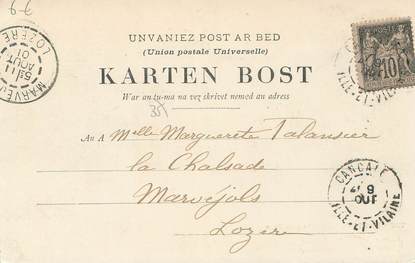 7-9
UNVANIEZ POST AR BED
(Union postale Universelle)
KARTEN BOST
War an tu-ma na vez skrivet nemed an adress
35f
AN A Mlle Marguerite Talansier
la Chalsade
Marvéjols
Lozère
MARVEJOLS
LOZÈRE
11
AOUT
01
CANCALE
ILLE-ET-VILAINE
10
CANCALE
9
OUT
ILLE-ET-VILAINE